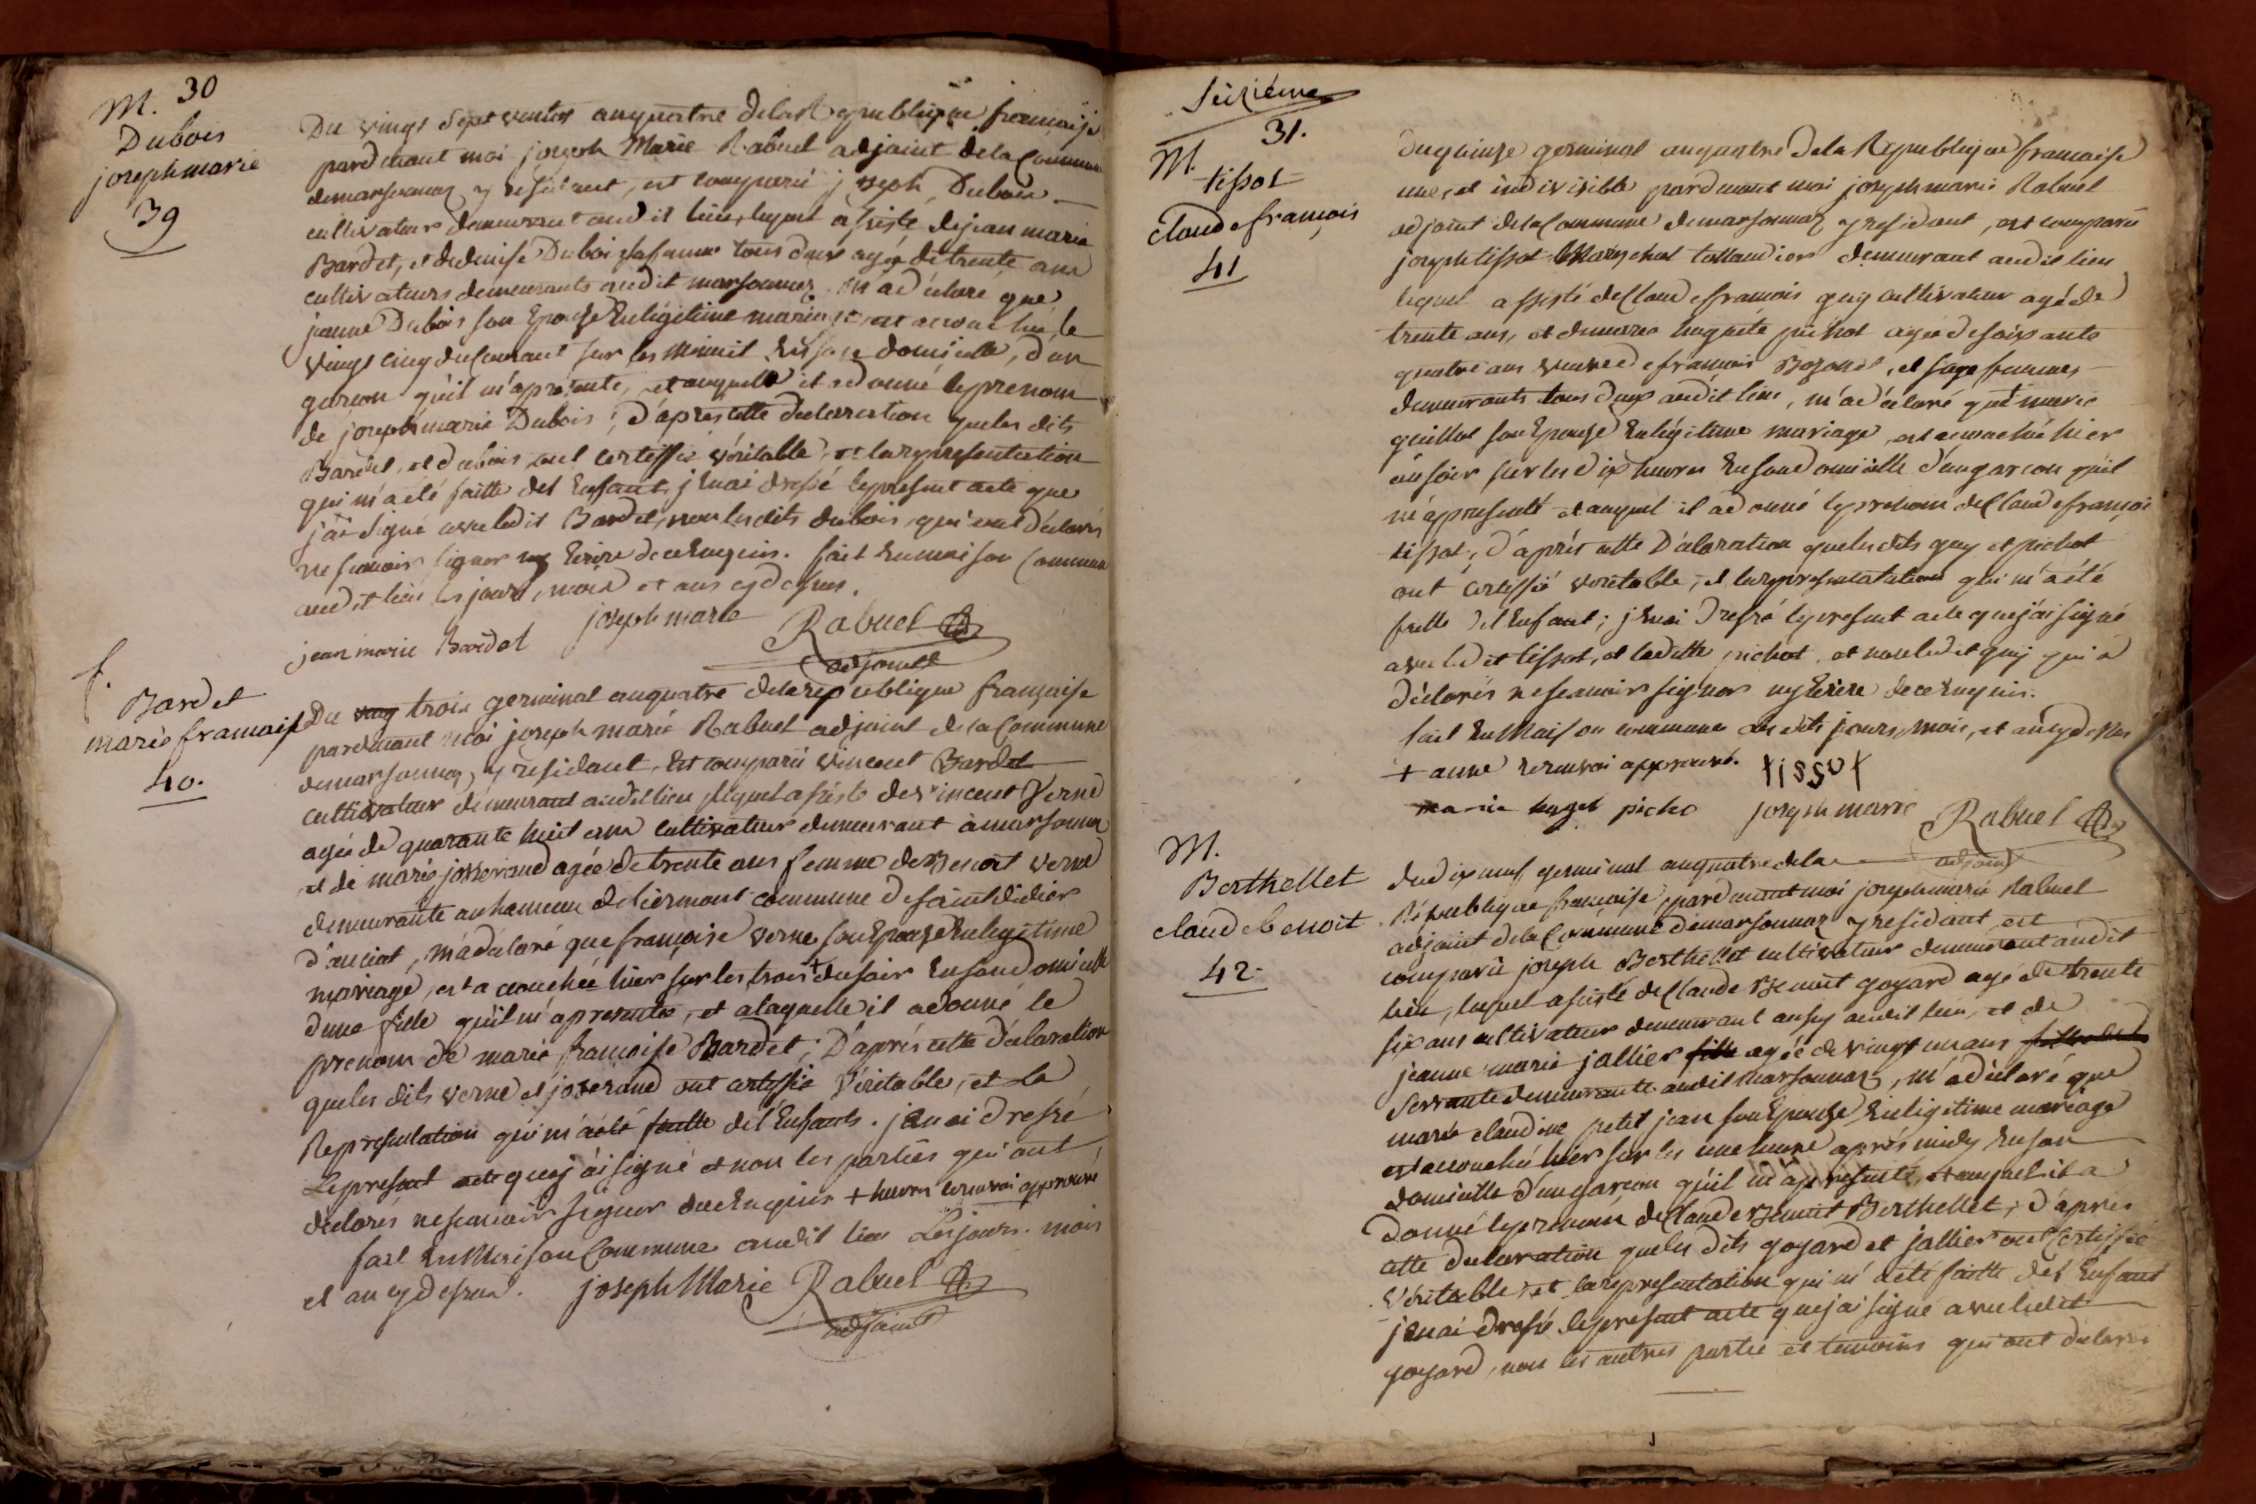 30
M.
Dubois
joseph marie
39
Du vingt sept ventos an quatre de la Republique francaise
pardevant moi joseph Marie Rabuel adjoint de la Commune
de marsonnaz y residant, est comparu joseph Dubois
cultivateur demeurant audit lieu, lequel assisté de jean marie
Bardet, et de denise Dubois sa femme tous deux agés de trente ans
cultivateurs demeurants audit marsonnaz. m'a déclaré que
jeanne Dubois son Epouse En légitime mariage est accouchée le
vingt cinq du Courant sur les Minuit En son domicille, d'un
garcon qu'il m'a presenté, et auquelle il a donné le prenom
de joseph marie Dubois; d'apres cette declarration que les dits
Bardet, et dubois ont certiffié véritable, et la representation
qui m'a été faitte del Enfant, j'En ai dressé le present acte que
j'ai signé avec ledit Bardet, non les dits dubois, qui ont déclarés
ne scavoir signer ny Ecrire de ce Enquis. fait En maison Commune
audit lieu les jours, mois et ans cy dessus.
jean marie Bardet joseph marie Rabuel
adjoint
f.
Bardet
marie francoise
40.
Du trois germinal an quatre de la republique française
pardevant moi joseph marie Rabuel adjoint de la Commune
de marsonnaz, y residant, Est comparu Vincent Bardet
cultivateur demeurant audit lieu, lequel assisté de vincent Verne
agée de quarante huit ans cultivateur demeurant à marsonnaz
et de marie josserand agée de trente ans femme de Benoit verne
demeurante au hameau de commune de saint didier
d'auciat, m'a déclaré que françoise verne son Epouse En legitime
mariage, est accouchée hier sur les trois + du soir En son domicille
d'une fille qu'il m'a presentée, et a laquelle il a donné le
prenom de marie francoise Bardet; D'après cette déclaration
que les dits verne et joserand ont certiffié Véritable, et la
Representation qui m'a été faitte del Enfants. j'En ai dressé
Le present acte que j'ai signé et non les parties qui ont
déclarés ne scavoir signer de ce Enquis + heures renvoi approuvé
fait En Maison Commune audit lieu Les jours. mois
et an cy dessus. joseph Marie Rabuel
adjoint
Seizième
31.
M.
tissot
claude françois
41
du quinze germinal an quatre de la Republique francaise
une, et indivisible pardevant moi joseph marie Rabuel
adjoint de la Commune de marsonnaz y residant, est comparu
joseph tissot Marechal tallandier demeurant audit lieu
lequel assisté de Claude francois guy cultivateur agé de
trente ans, et demeurée huguete pichot agée de soixante
quatre ans veuve de francois, et sage femme
demeurants tous deux audit lieu, m'a déclaré que marie
guillot son Epouse En légitime mariage est accouchée hier
au soir sur les dix heures En son domicille d'un garcon qu'il
m'a presenté et auquel il a donné le prenom de Claude françois
tissot; d'après cette Déclaration que les dits guy et pichot
ont certiffié veritable, et la representation qui m'a été
faitte del Enfant; j'En ai dressé le present acte que j'ai signé
avec ledit tissot, et ladite pichot, et non ledit guy qui a
déclarés ne scavoir signer ny Ecrire de ce Enquis.
fait En Maison commune les dits jours, mois, et an cy dessus
+ anne renvoi approuvé. tissot
maria huget picho joseph marie Rabuel
adjoint
M.
Berthellet
claude benoit
42.
du dix neuf germinal an quatre de la
République francaise, pardevant moi joseph marie Rabuel
adjoint de la Commune de marsonnaz y residant, est
comparu joseph Berthellet cultivateur demeurant audit
lieu, lequel assisté de Claude Benoit goyard agé de trente
six ans cultivateur demeurant aussy audit lieu, et de
jeanne marie jallier fille agée de vingt un ans
servante demeurante audit Marsonnaz, m'a déclaré que
marie claudine petit jean son Epouse En legitime mariage
est accouchée hier sur les une heure après midy En son
domicille d'un garcon qu'il m'a presenté, et auquel il a
donné le prenom de Claude Benoit Berthellet; d'apres
cette declaration que les dits goyard et jallier ont Certiffié
véritable, et la representation qui m'a été faitte del Enfant
j'En ai dressé le present acte que j'ai signé avec ledit
goyard, non les autres partie et temoins qui ont declarés